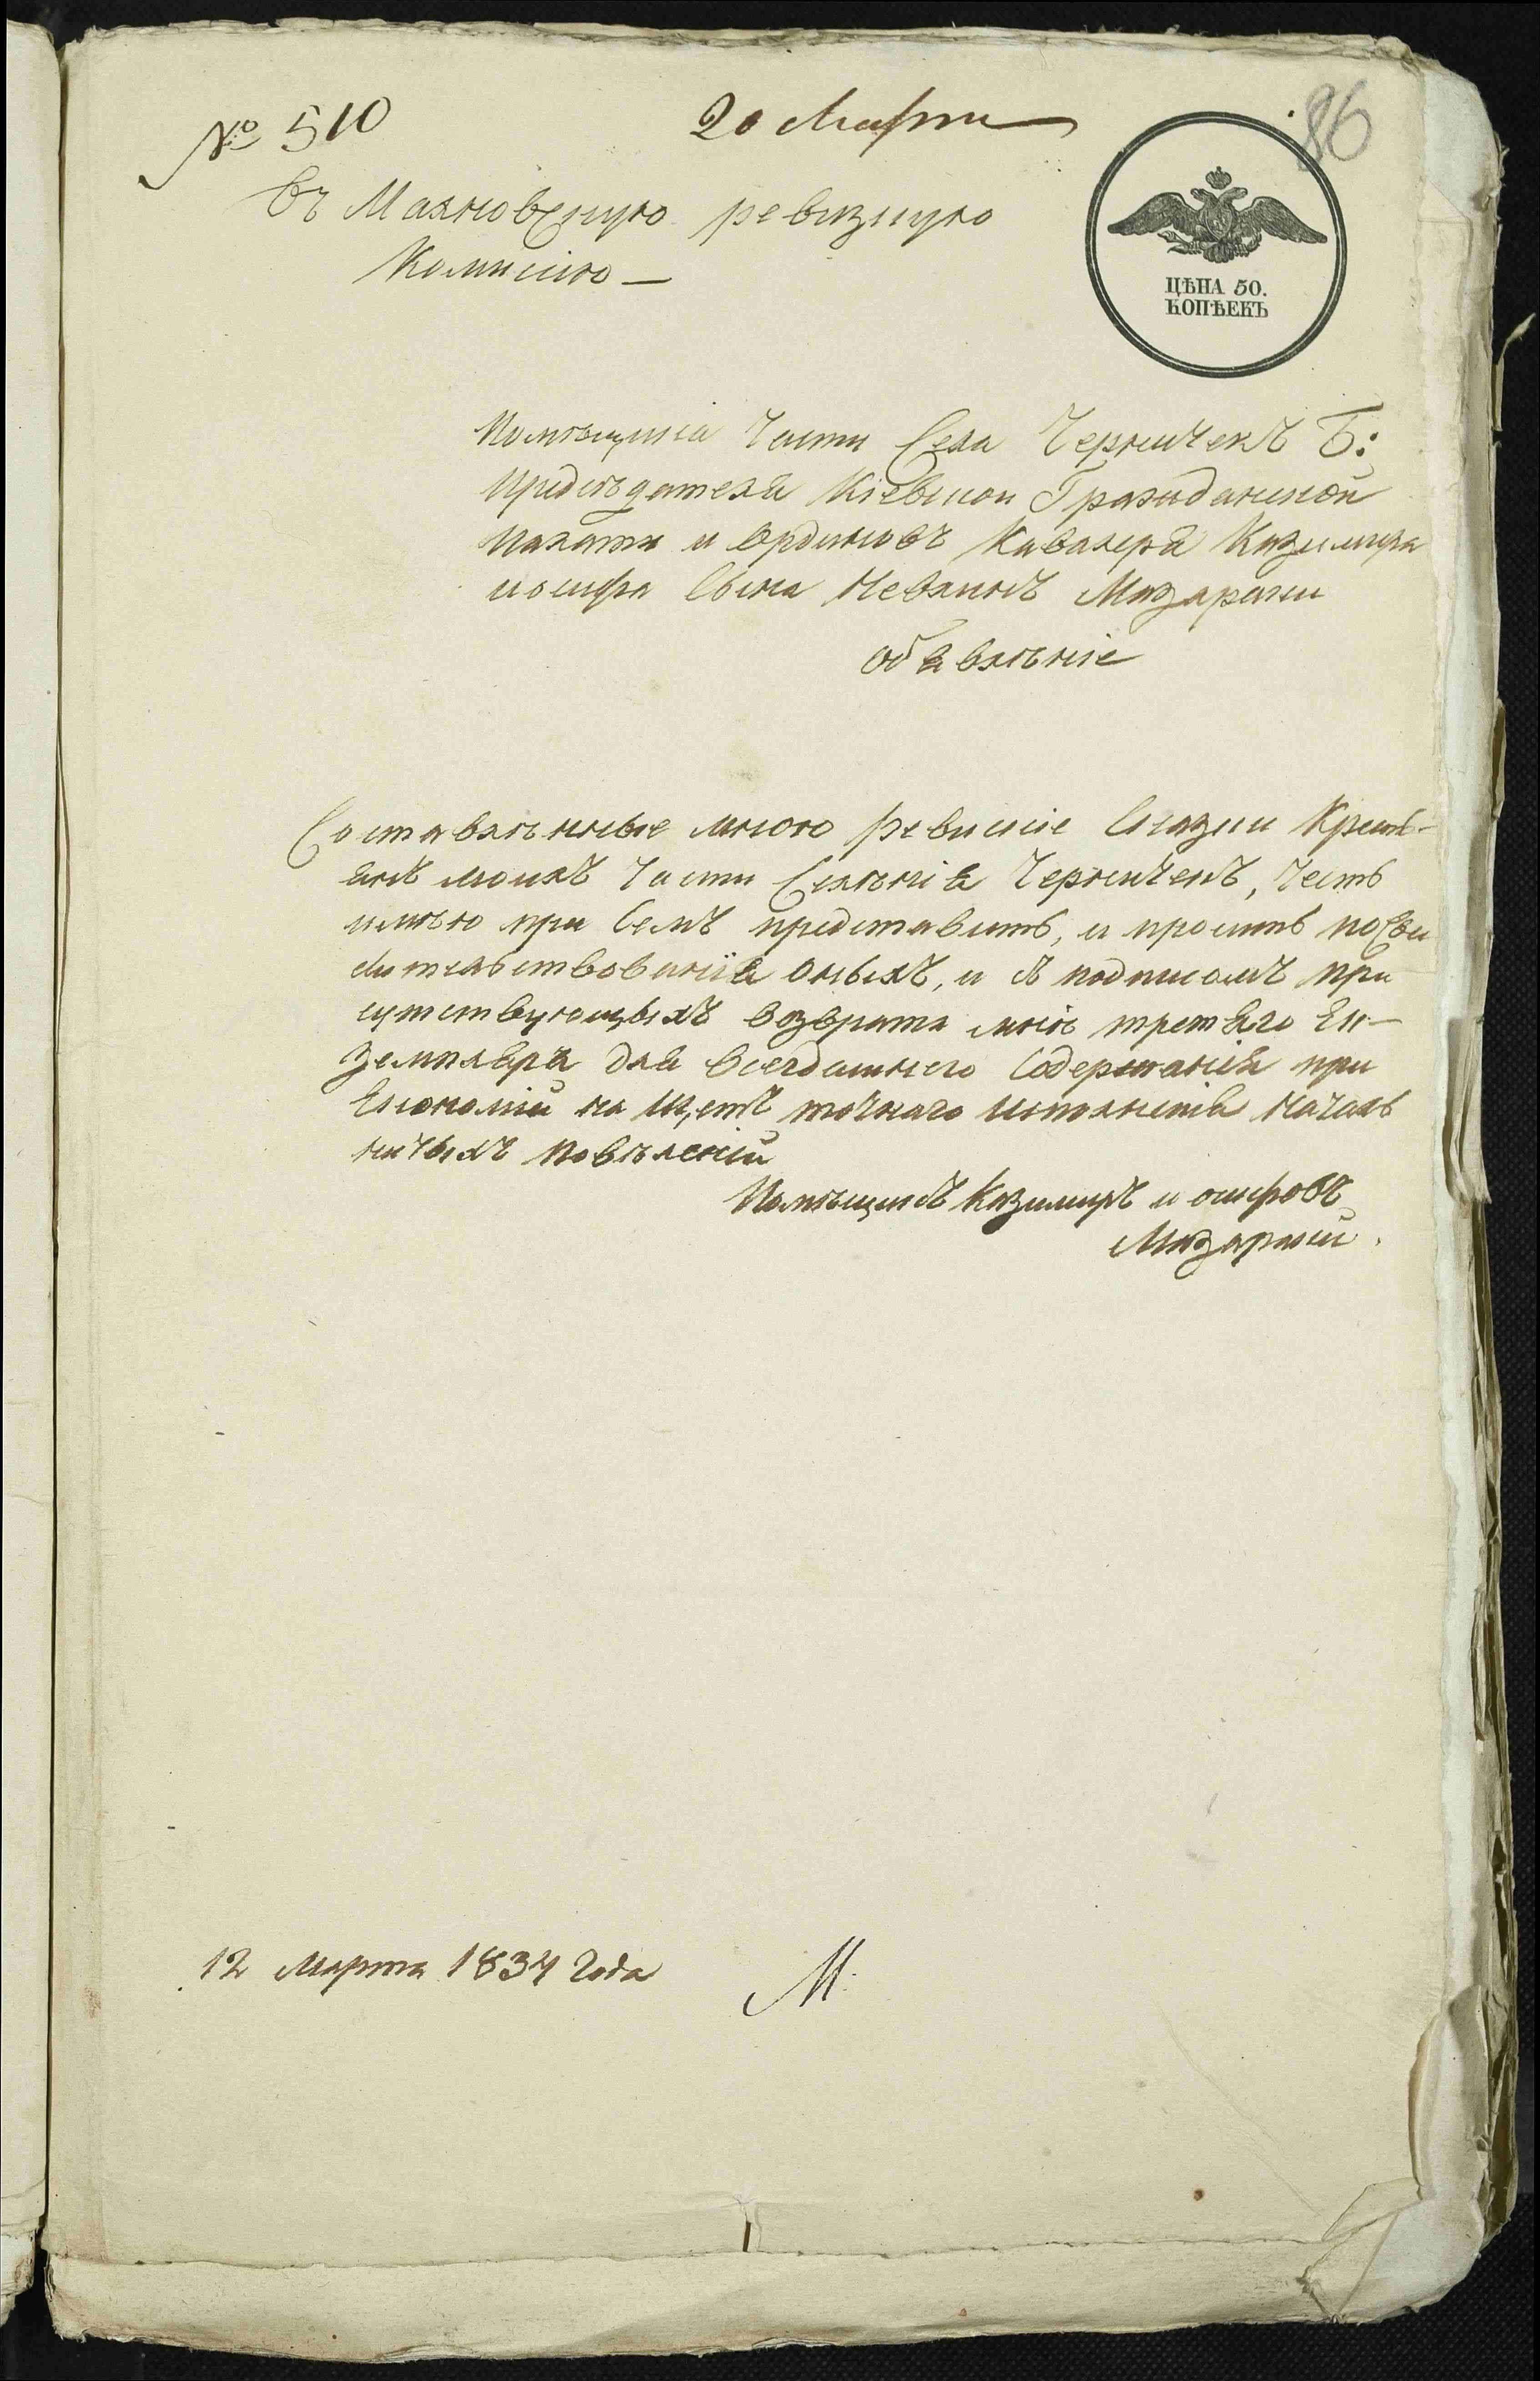 № 510
20 Марта
86
Въ Махновскую ревизкую
Комисию —
ЦѢНА 50.
КОПѢЕКЪ
Помѣщика Части Села Чернычекъ Б:
Председателя Кіевской Гражданской
Палаты и Орденовъ Кавалера Казимира
иосифа Сына Мазараки
обявлѣніе
Составлѣнные мною ревискіе Сказки Кресть-
янъ моихъ Части Селѣнія Чернычекъ, Честь
имѣю при Семъ представить, и просить по Сви
дительствованія оныхъ, и съ подписомъ При
сутствующыхъ возврата мнѣ третяго Ек-
Земпляра для всегдашнего Содержанія при
Економіи на щетъ точнаго Исполненія Началь
ничыхъ Повѣленій
Помѣщикъ Казимиръ иосифовъ
Мазараки.
12 Марта 1834 Года
М.